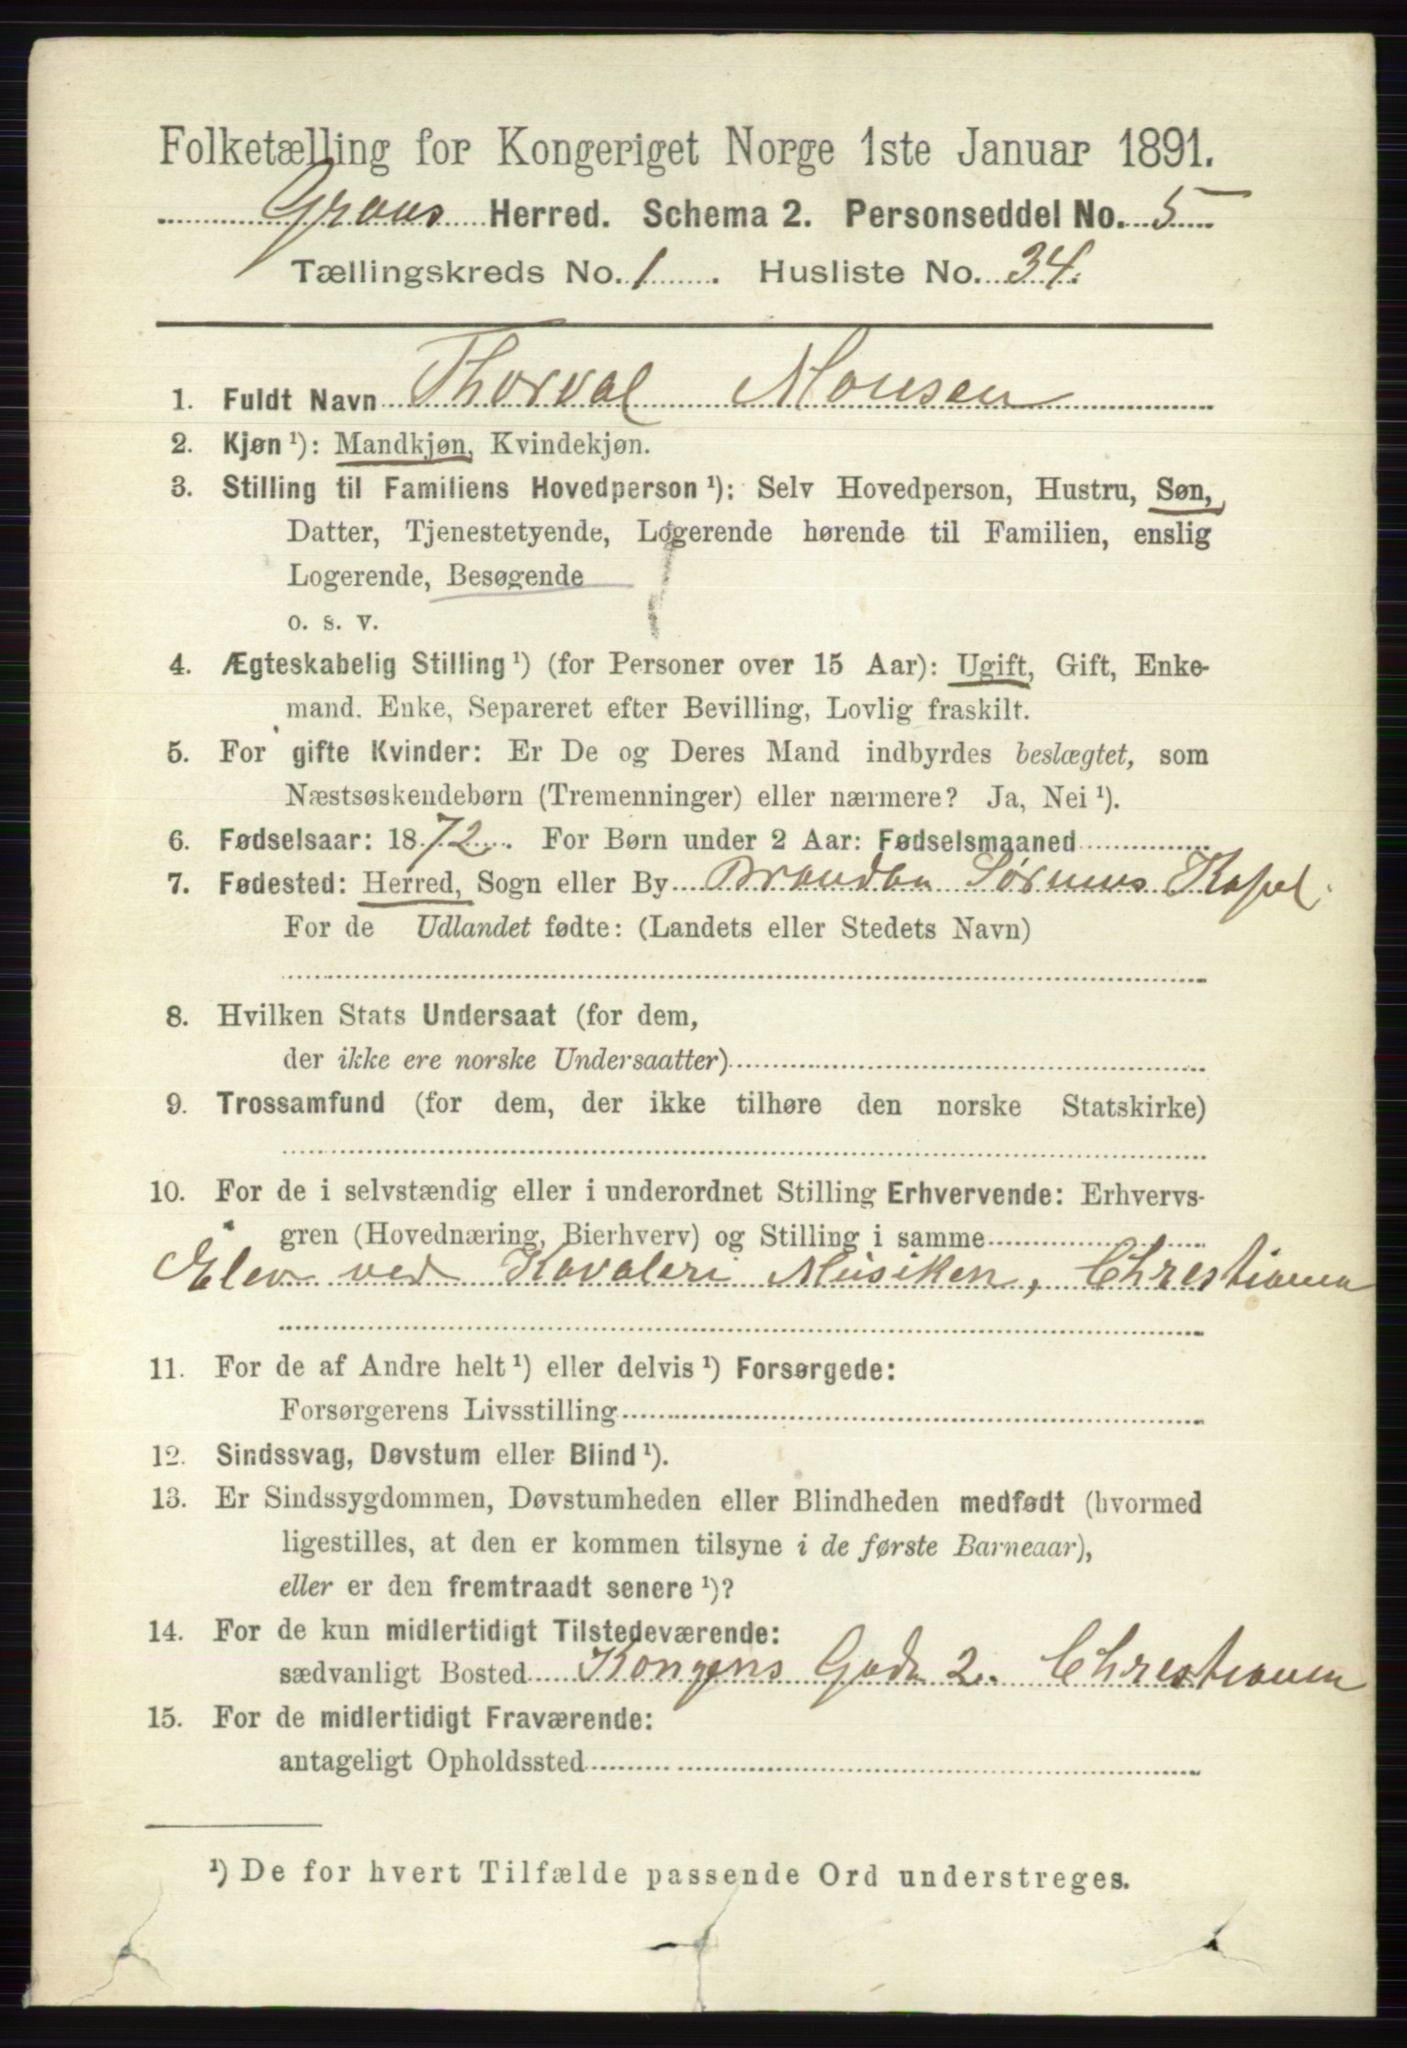 Folketælling for Kongeriget Norge 1ste Januar 1891.
Grans Herred. Schema 2. Personseddel No. 5
Tællingskreds No. 1. Husliste No. 34.
1. Fuldt Navn Thorval Monsen
2. Kjøn ¹): Mandkjøn, Kvindekjøn.
3. Stilling til Familiens Hovedperson ¹): Selv Hovedperson, Hustru, Søn,
Datter, Tjenestetyende, Logerende hørende til Familien, enslig
Logerende, Besøgende
o. s. v.
4. Ægteskabelig Stilling ¹) (for Personer over 15 Aar): Ugift, Gift, Enke-
mand. Enke, Separeret efter Bevilling, Lovlig fraskilt.
5. For gifte Kvinder: Er De og Deres Mand indbyrdes beslægtet, som
Næstsøskendebørn (Tremenninger) eller nærmere? Ja, Nei ¹).
6. Fødselsaar: 1872. For Børn under 2 Aar: Fødselsmaaned
7. Fødested: Herred, Sogn eller By Brandbu Sørums Kapel.
For de Udlandet fødte: (Landets eller Stedets Navn)
8. Hvilken Stats Undersaat (for dem,
der ikke ere norske Undersaatter)
9. Trossamfund (for dem, der ikke tilhøre den norske Statskirke)
10. For de i selvstændig eller i underordnet Stilling Erhvervende: Erhvervs-
gren (Hovednæring, Bierhverv) og Stilling i samme
Elev ved Kavaleri Musiken, Chrestiania
11. For de af Andre helt ¹) eller delvis ¹) Forsørgede:
Forsørgerens Livsstilling
12. Sindssvag, Døvstum eller Blind ¹).
13. Er Sindssygdommen, Døvstumheden eller Blindheden medfødt (hvormed
ligestilles, at den er kommen tilsyne i de første Barneaar),
eller er den fremtraadt senere ¹)?
14. For de kun midlertidigt Tilstedeværende:
sædvanligt Bosted Kongens Gade 2. Chrestiania
15. For de midlertidigt Fraværende:
antageligt Opholdssted
¹) De for hvert Tilfælde passende Ord understreges.